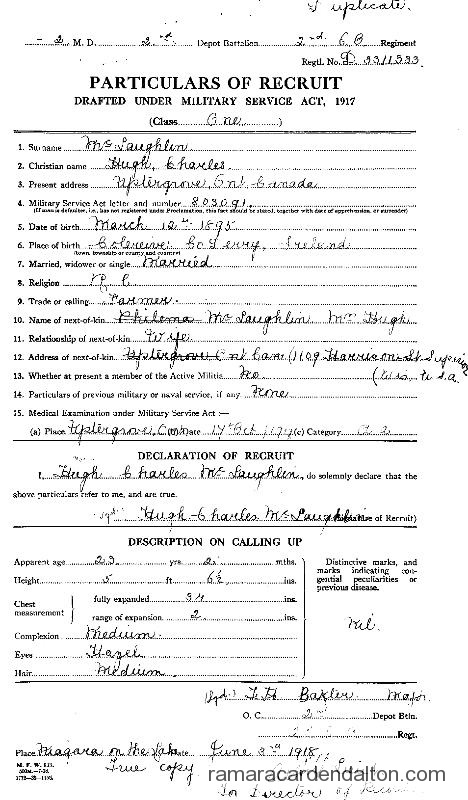 2 M. D. 2nd Depot Battalion 2nd C O Regiment
Regtl. No. D. 3311533
PARTICULARS OF RECRUIT
DRAFTED UNDER MILITARY SERVICE ACT, 1917
(Class One)
1. Surname McLaughlin
2. Christian name Hugh, Charles.
3. Present address Uptergrove, Ont Canada
4. Military Service Act letter and number 803091
(If man is defaulter, i.e., has not registered under Proclamation, this fact should be stated, together with date of apprehension, or surrender)
5. Date of birth March 12th 1895
6. Place of birth Colereive Co Derry, Ireland
(town, township or county and country)
7. Married, widower or single Married
8. Religion R C
9. Trade or calling Farmer.
10. Name of next-of-kin Philoma McLaughlin Mrs Hugh
11. Relationship of next-of-kin Wife
12. Address of next-of-kin Uptergrove Ont Can (1109 Harrison St Superior
13. Whether at present a member of the Active Militia No (Wis, U.S.A.
14. Particulars of previous military or naval service, if any None
15. Medical Examination under Military Service Act :—
(a) Place Uptergrove, Ont (b) Date 14th Oct, 1917 (c) Category A 2
DECLARATION OF RECRUIT
I, Hugh Charles McLaughlin, do solemnly declare that the
above particulars refer to me, and are true.
sgd Hugh Charles McLaughlin (Signature of Recruit)
DESCRIPTION ON CALLING UP
Apparent age 23 yrs. 2 mths.
Height 5 ft 6½ ins.
Chest measurement fully expanded 34 ins.
range of expansion 2 ins.
Complexion Medium.
Eyes Hazel
Hair Medium.
Distinctive marks, and
marks indicating con-
genital peculiarities or
previous disease.
Nil.
Sgd. Baxter Major
O. C. 2nd Depot Btln.
Regt.
Place Niagara on the Lake Date June 3rd 1918
M. F. W. 133.
True copy
For Director of
ramaracardendalton.com